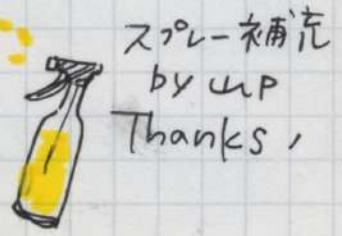 スプレー補充
by山P
Thanks,